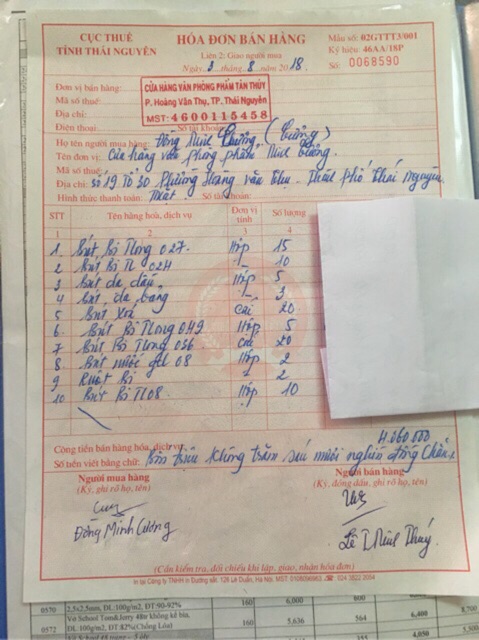 CỤC THUẾ
TỈNH THÁI NGUYÊN
HÓA ĐƠN BÁN HÀNG
Liên 2: Giao người mua
Ngày 3 tháng 8 năm 2018
Mẫu số: 02GTTT3/001
Ký hiệu: 46AA/18P
Số: 0068590
Đơn vị bán hàng: CỬA HÀNG VĂN PHÒNG PHẨM TÂN THỦY
Mã số thuế:
Địa chỉ: P. Hoàng Văn Thụ, TP. Thái Nguyên
MST: 4600115458
Điện thoại: Số tài khoản:
Họ tên người mua hàng: Đồng Minh Cường (Cường)
Tên đơn vị: Cửa hàng văn phòng phẩm Minh Cường.
Mã số thuế:
Địa chỉ: Số 19 Tổ 30 Phường Hoàng Văn Thụ - Thành phố Thái Nguyên
Hình thức thanh toán: Số tài khoản:
STT Tên hàng hoá, dịch vụ Đơn vị tính Số lượng
1 2 3 4
1 Bút Bi TLong 027 Hộp 15
2 Bút Bi TL 024 - 10
3 Bút dạ dầu Hộp 5
4 Bút dạ bảng - 3
5 Bút Xoá Cái 20
6 Bút Bi TLong 049 Hộp 5
7 Bút Bi TLong 036 Cái 20
8 Bút nước gel 08 Hộp 2
9 Ruột Bi - 2
10 Bút Bi TL08 Hộp 10
Cộng tiền bán hàng hóa, dịch vụ 4.060.000
Số tiền viết bằng chữ: Bốn triệu không trăm sáu mươi nghìn đồng Chẵn
Người mua hàng
(Ký, ghi rõ họ, tên)
Người bán hàng
(Ký, đóng dấu, ghi rõ họ, tên)
Đồng Minh Cường
Lê T Minh Thúy
(Cần kiểm tra, đối chiếu khi lập, giao, nhận hóa đơn)
0570 2,5x2,5mm, ĐL:100g/m2, ĐT:90-92% 160 6,000
0572 Vở School Tom&Jerry 48tr không kẻ bìa, ĐL:100g/m2, ĐT:82%(Chống Lóa) 160 5,636 564 6,400